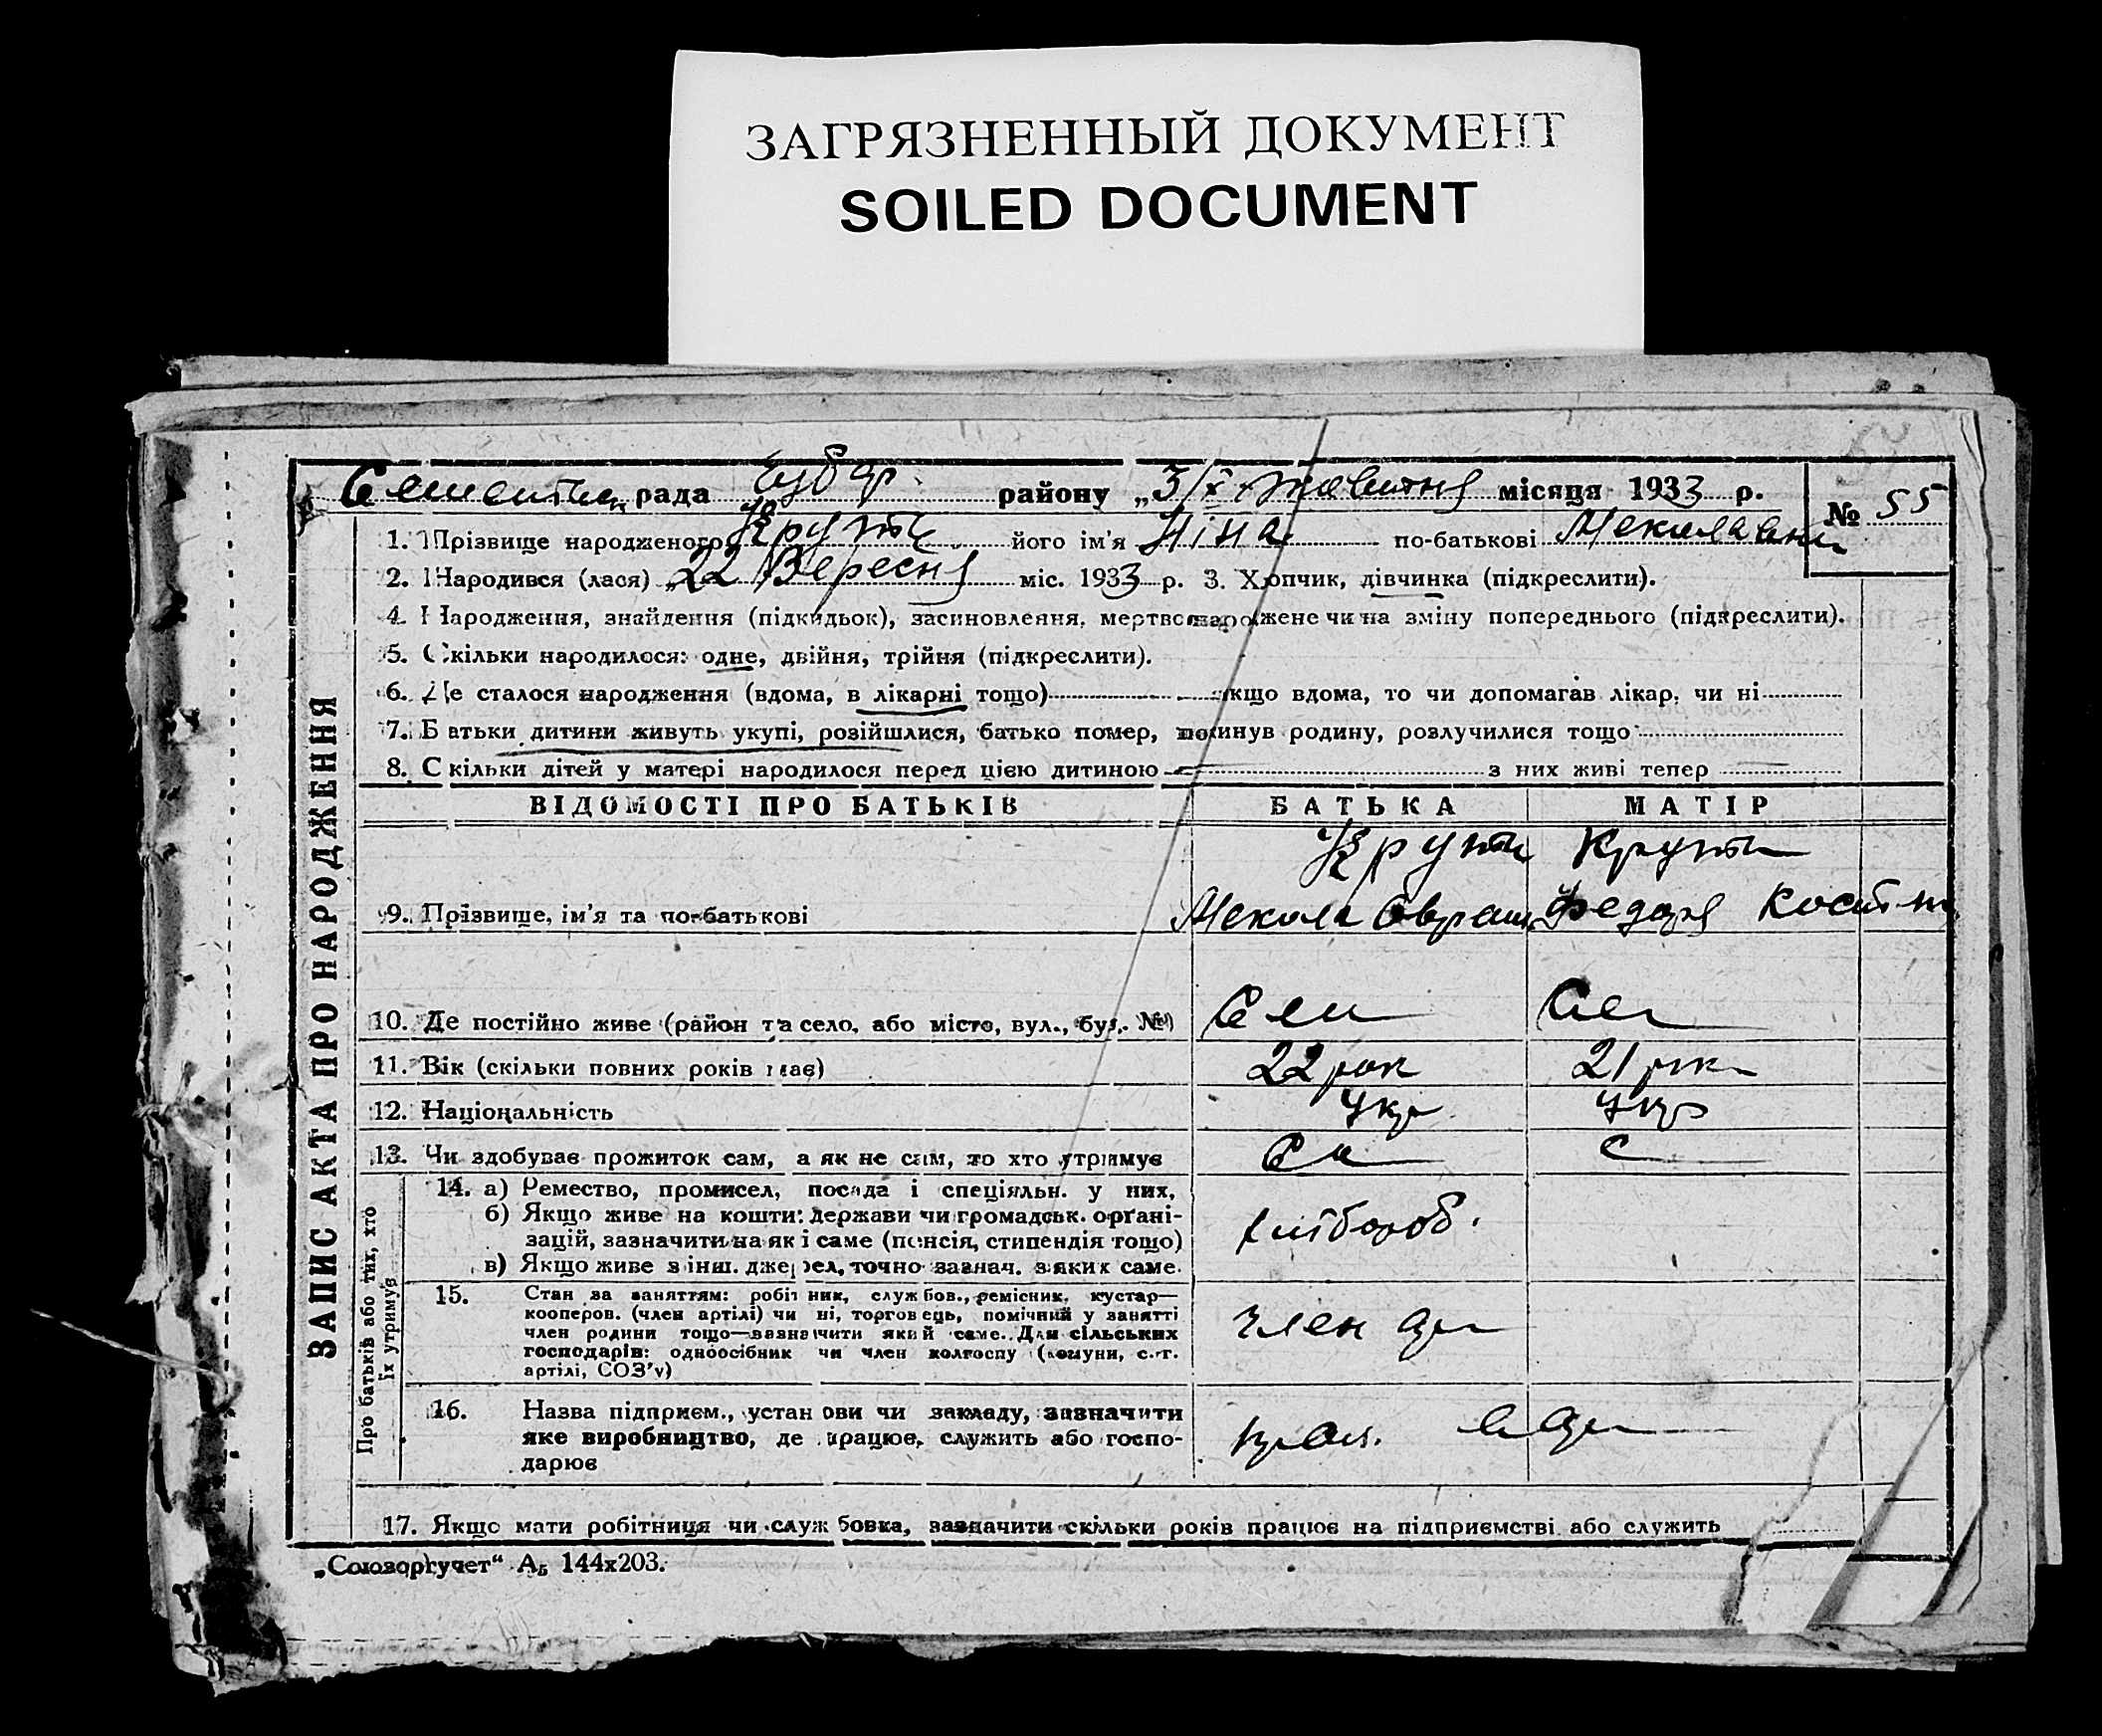 ЗАГРЯЗНЕННЫЙ ДОКУМЕНТ
SOILED DOCUMENT
рада Чубар. району „3/X жовтня місяця 1933 р.
№ 55
1. Прізвище народженого Круть його ім'я Ніна по-батькові
2. Народився (лася) „22 Вересня міс. 1933 р. 3. Хлопчик, дівчинка (підкреслити).
4. Народження, знайдення (підкидьок), засиновлення, мертвонароджене чи на зміну попереднього (підкреслити).
5. Скільки народилося: одне, двійня, трійня (підкреслити).
6. Де сталося народження (вдома, в лікарні тощо) якщо вдома, то чи допомагав лікар, чи ні
7. Батьки дитини живуть укупі, розійшлися, батько помер, покинув родину, розлучилися тощо
8. Скільки дітей у матері народилося перед цією дитиною — з них живі тепер —
ЗАПИС АКТА ПРО НАРОДЖЕННЯ
ВІДОМОСТІ ПРО БАТЬКІВ БАТЬКА МАТІР
Круть Круть
9. Прізвище, ім'я та по-батькові Мекола Оврам Федора Кост
10. Де постійно живе (район та село, або місто, вул., буд. №)
11. Вік (скільки повних років має) 22 рок 21 рок
12. Національність Укр Укр
13. Чи здобував прожиток сам, а як не сам, то хто утримує
Про батьків або тих, хто
їх утримує
14. а) Ремество, промисел, посада і спеціяльн. у них,
б) Якщо живе на кошти: держави чи громадськ. органі-
зацій, зазначити на які саме (пенсія, стипендія тощо)
в) Якщо живе з інш. джерел, точно зазнач. з яких саме.
хлібороб.
15. Стан за заняттям: робітник, службов., ремісник, кустар—
кооперов. (член артілі) чи ні, торговець, помічний у занятті
член родини тощо—зазначити який саме. Для сільських
господарів: одноосібник чи член колгоспу (комуни, с.-г.
артілі, СОЗ'у)
член
16. Назва підприєм., установи чи закладу, зазначити
яке виробництво, де працює, служить або госпо-
дарює
17. Якщо мати робітниця чи службовка, зазначити скільки років працює на підприємстві або служить
„Союзоргучет“ А₅ 144х203.